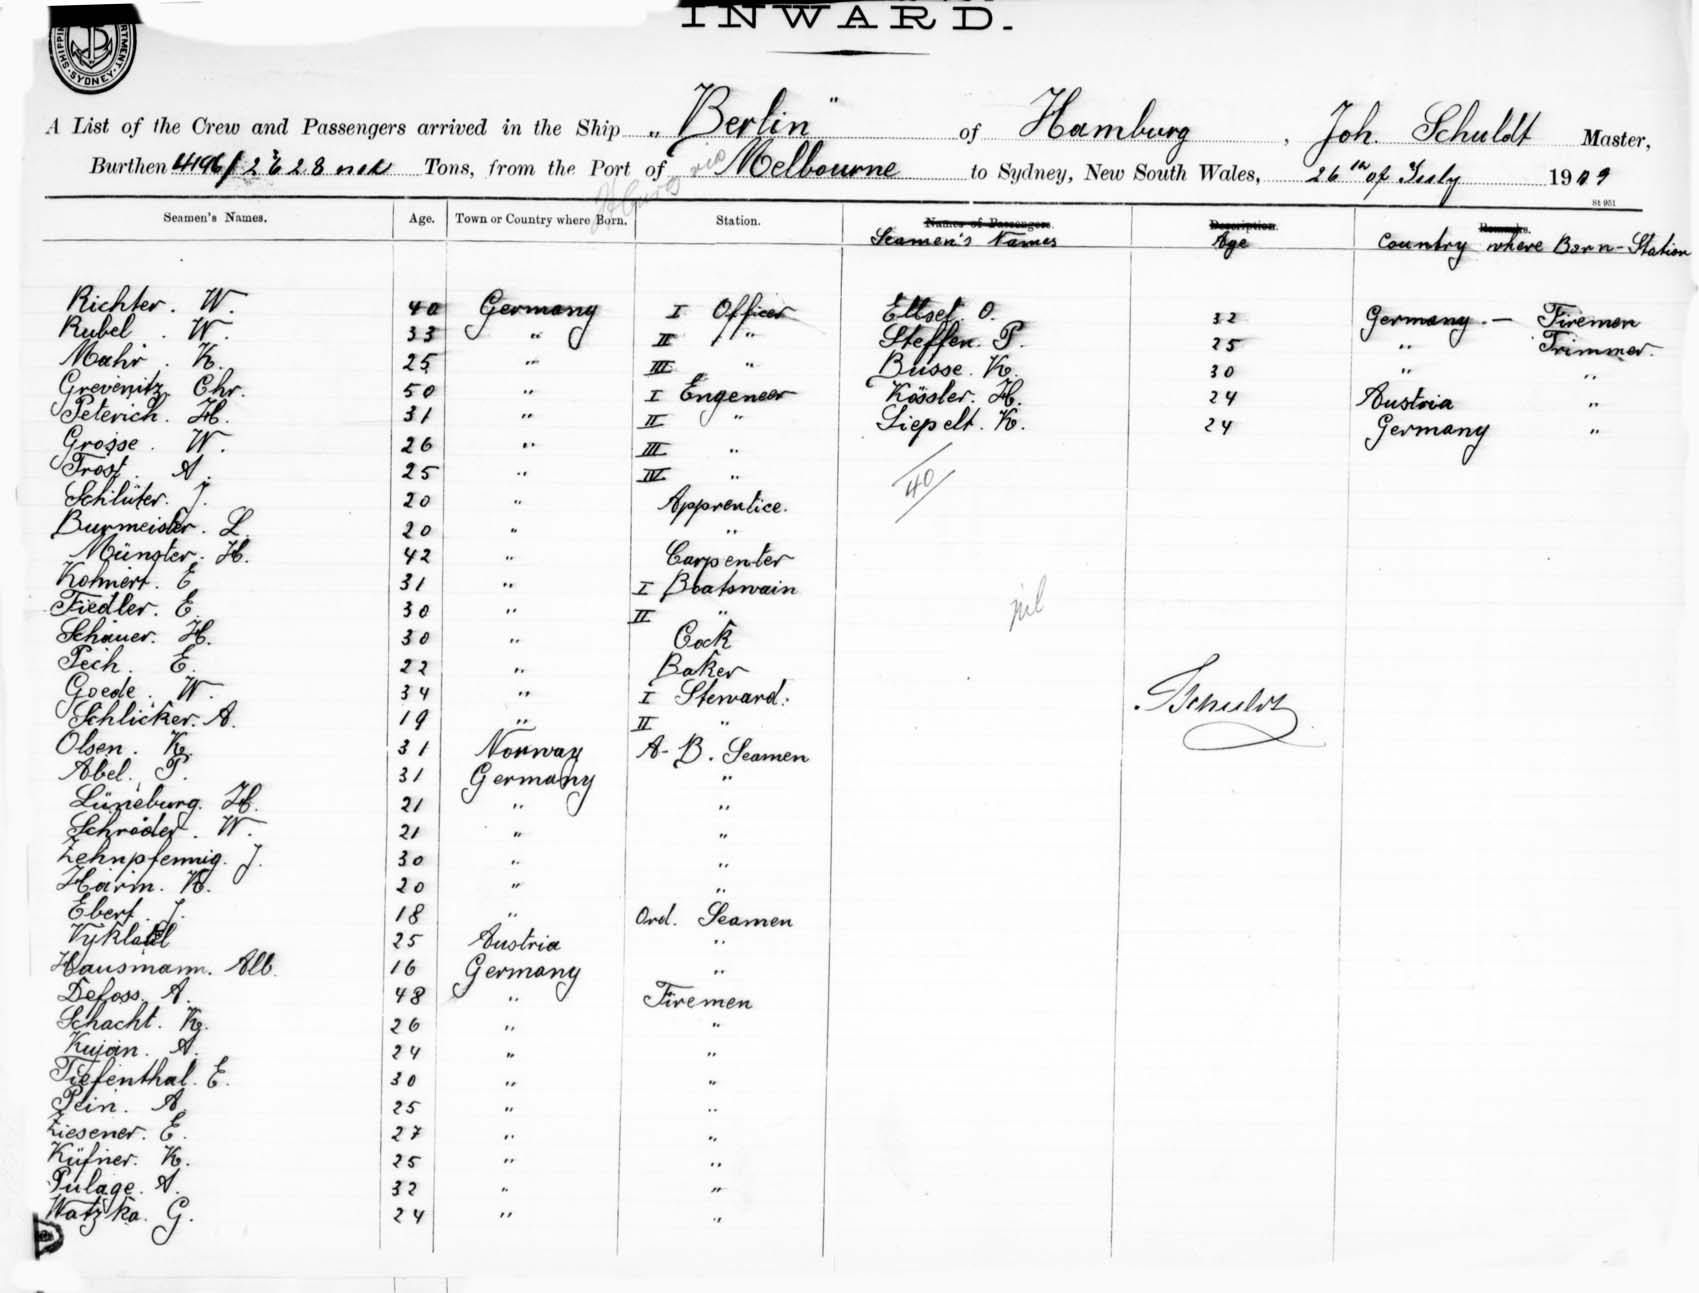 INWARD.
A List of the Crew and Passengers arrived in the Ship „Berlin" of Hamburg, Joh. Schuldt Master,
Burthen 4196/2628 Tons, from the Port of via Melbourne to Sydney, New South Wales, 26th of July 1909
St 951
Seamen's Names. Age. Town or Country where Born. Station. Names of Passengers. Description. Remarks.
Seamen's Names Age Country where Born - Station
Richter. W. 40 Germany I Officer O. 32 Germany. — Firemen
Rubel. W. 33 " II " Steffen. P. 25 " Trimmer.
Mahr. K. 25 " III " Busse. K. 30 " "
Grevenitz. Chr. 50 " I Engeneer Kössler. H. 24 Austria "
Peterich. H. 31 " II " Liepelt. K. 24 Germany "
Grosse. W. 26 " III "
Trost. A. 25 " IV " 40
Schlüter. J. 20 " Apprentice.
Burmeister. L. 20 " "
Münster. H. 42 " Carpenter
Kohnert. E. 31 " I Boatswain
Fiedler. E. 30 " II " nil
Schauer. H. 30 " Cock
Pech. E. 22 " Baker
Goede. W. 34 " I Steward. JSchuldt
Schlicker. A. 19 " II "
Olsen. K. 31 Norway A-B. Seamen
Abel. P. 31 Germany "
Lüneburg. H. 21 " "
Schröder. W. 21 " "
Zehnpfennig. J. 30 " "
Harim. K. 20 " "
Ebert. J. 18 " Ord. Seamen
25 Austria "
Hausmann. Alb. 16 Germany "
Defoss. A. 48 " Firemen
Schacht. K. 26 " "
Kujan. A. 24 " "
Tiefenthal. E. 30 " "
Pein. A. 25 " "
Ziesener. E. 27 " "
Küfner. K. 25 " "
Pulage. A. 32 " "
Watzka. G. 24 " "